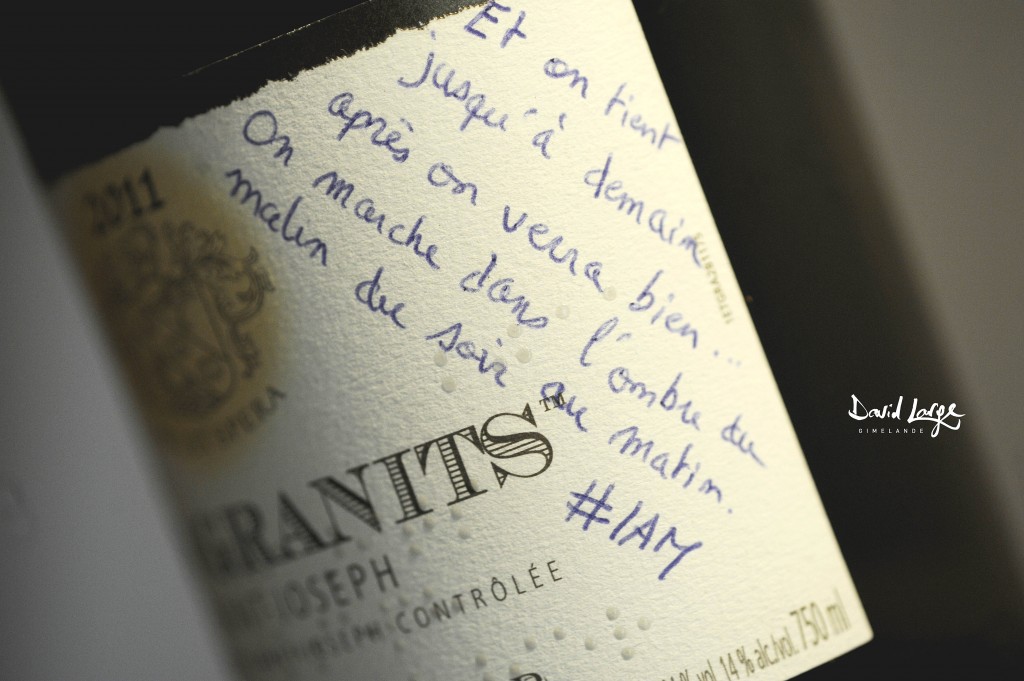 Et on tient
jusqu'à demain
après on verra bien...
On marche dans l'ombre du
malin du soir au matin.
#IAM
2011
GRANITS™
JOSEPH
CONTRÔLÉE
14 % alc./vol. 750 ml
David Large
GIMELANDE